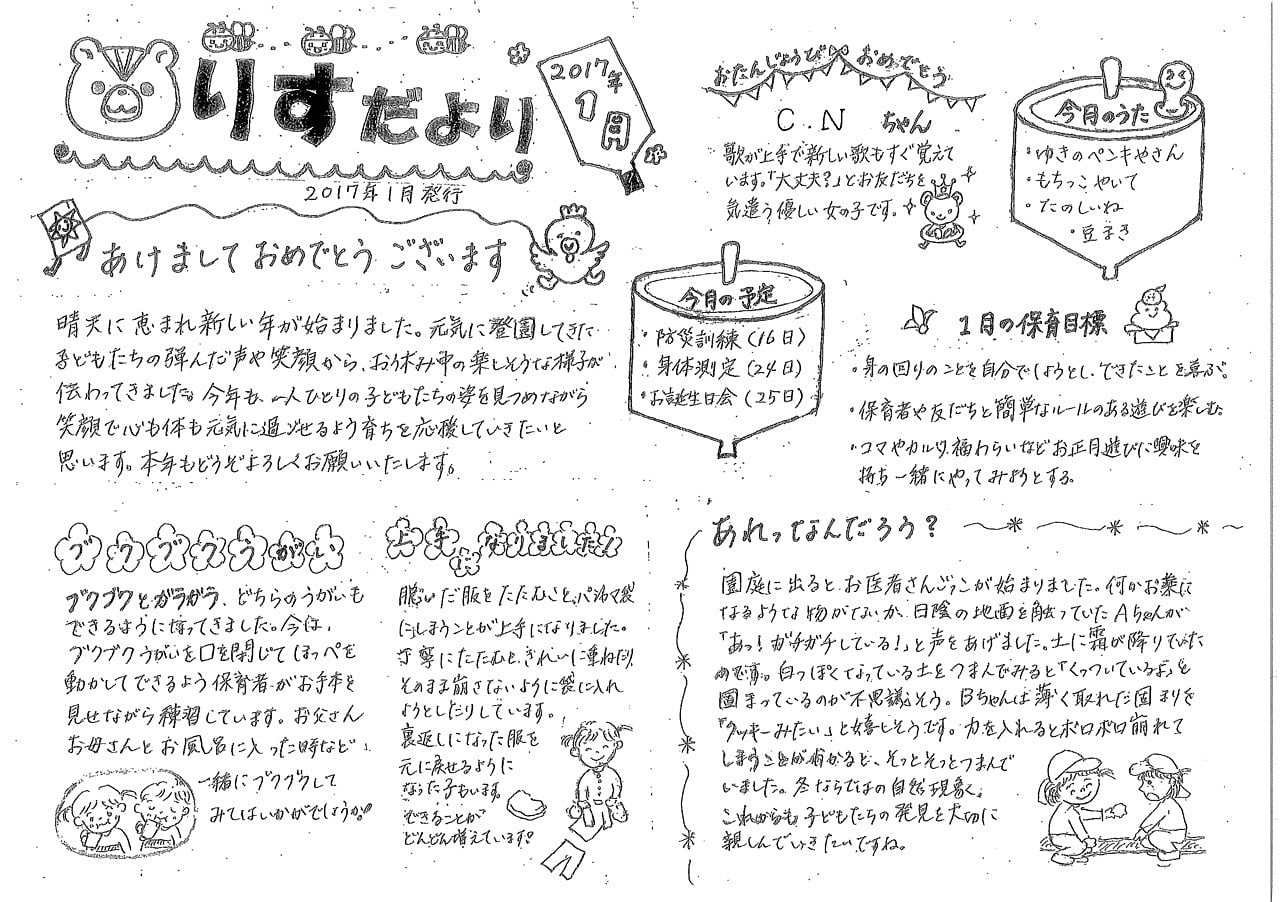 りすだより
2017年
1月
2017年1月発行
あけまして おめでとう ございます
晴天に恵まれ新しい年が始まりました。元気に登園してきた
子どもたちの弾んだ声や笑顔から、お休み中の楽しそうな様子が
伝わってきました。今年も、一人ひとりの子どもたちの姿を見つめながら
笑顔で心も体も元気に過ごせるよう育ちを応援していきたいと
思います。本年もどうぞよろしくお願いいたします。
おたんじょうび おめでとう
C.N ちゃん
歌が上手で新しい歌もすぐ覚えて
います。「大丈夫?」とお友だちを
気遣う優しい女の子です。
今月のうた
・ゆきのペンキやさん
・もちっこやいて
・たのしいね
・豆まき
今月の予定
・防災訓練(16日)
・身体測定(24日)
・お誕生日会(25日)
1月の保育目標
・身の回りのことを自分でしようとし、できたことを喜ぶ。
・保育者や友だちと簡単なルールのある遊びを楽しむ
・コマやカルタ、福わらいなどお正月遊びに興味を
持ち一緒にやってみようとする。
ブクブクうがい
ブクブクとガラガラ、どちらのうがいも
できるようになってきました。今は、
ブクブクうがいを口を閉じてほっぺを
動かしてできるよう保育者がお手本を
見せながら練習しています。お父さん
お母さんとお風呂に入った時など、
一緒にブクブクして
みてはいかがでしょうか。
上手になりました!
脱いだ服をたたむこと、パジャマ袋
にしまうことが上手になりました。
丁寧にたたむと、きれいに重ねたり、
そのまま崩さないように袋に入れ
ようとしたりしています。
裏返しになった服を
元に戻せるように
なった子もいます。
できることが
どんどん増えています!
あれってなんだろう?
園庭に出るとお医者さんごっこが始まりました。何かお薬に
なるような物がないか、日陰の地面を触っていたAちゃんが
「あっ!ガチガチしている!」と声をあげました。土に霜が降りていた
のです。白っぽくなっている土をつまんでみると「くっついているよ」と
固まっているのが不思議そう。Bちゃんは薄く取れた固まりを
「クッキーみたい」と嬉しそうです。力を入れるとボロボロ崩れて
しまうことが分かると、そっとそっとつまんで
いました。冬ならではの自然現象。
これからも、子どもたちの発見を大切に
親しんでいきたいですね。